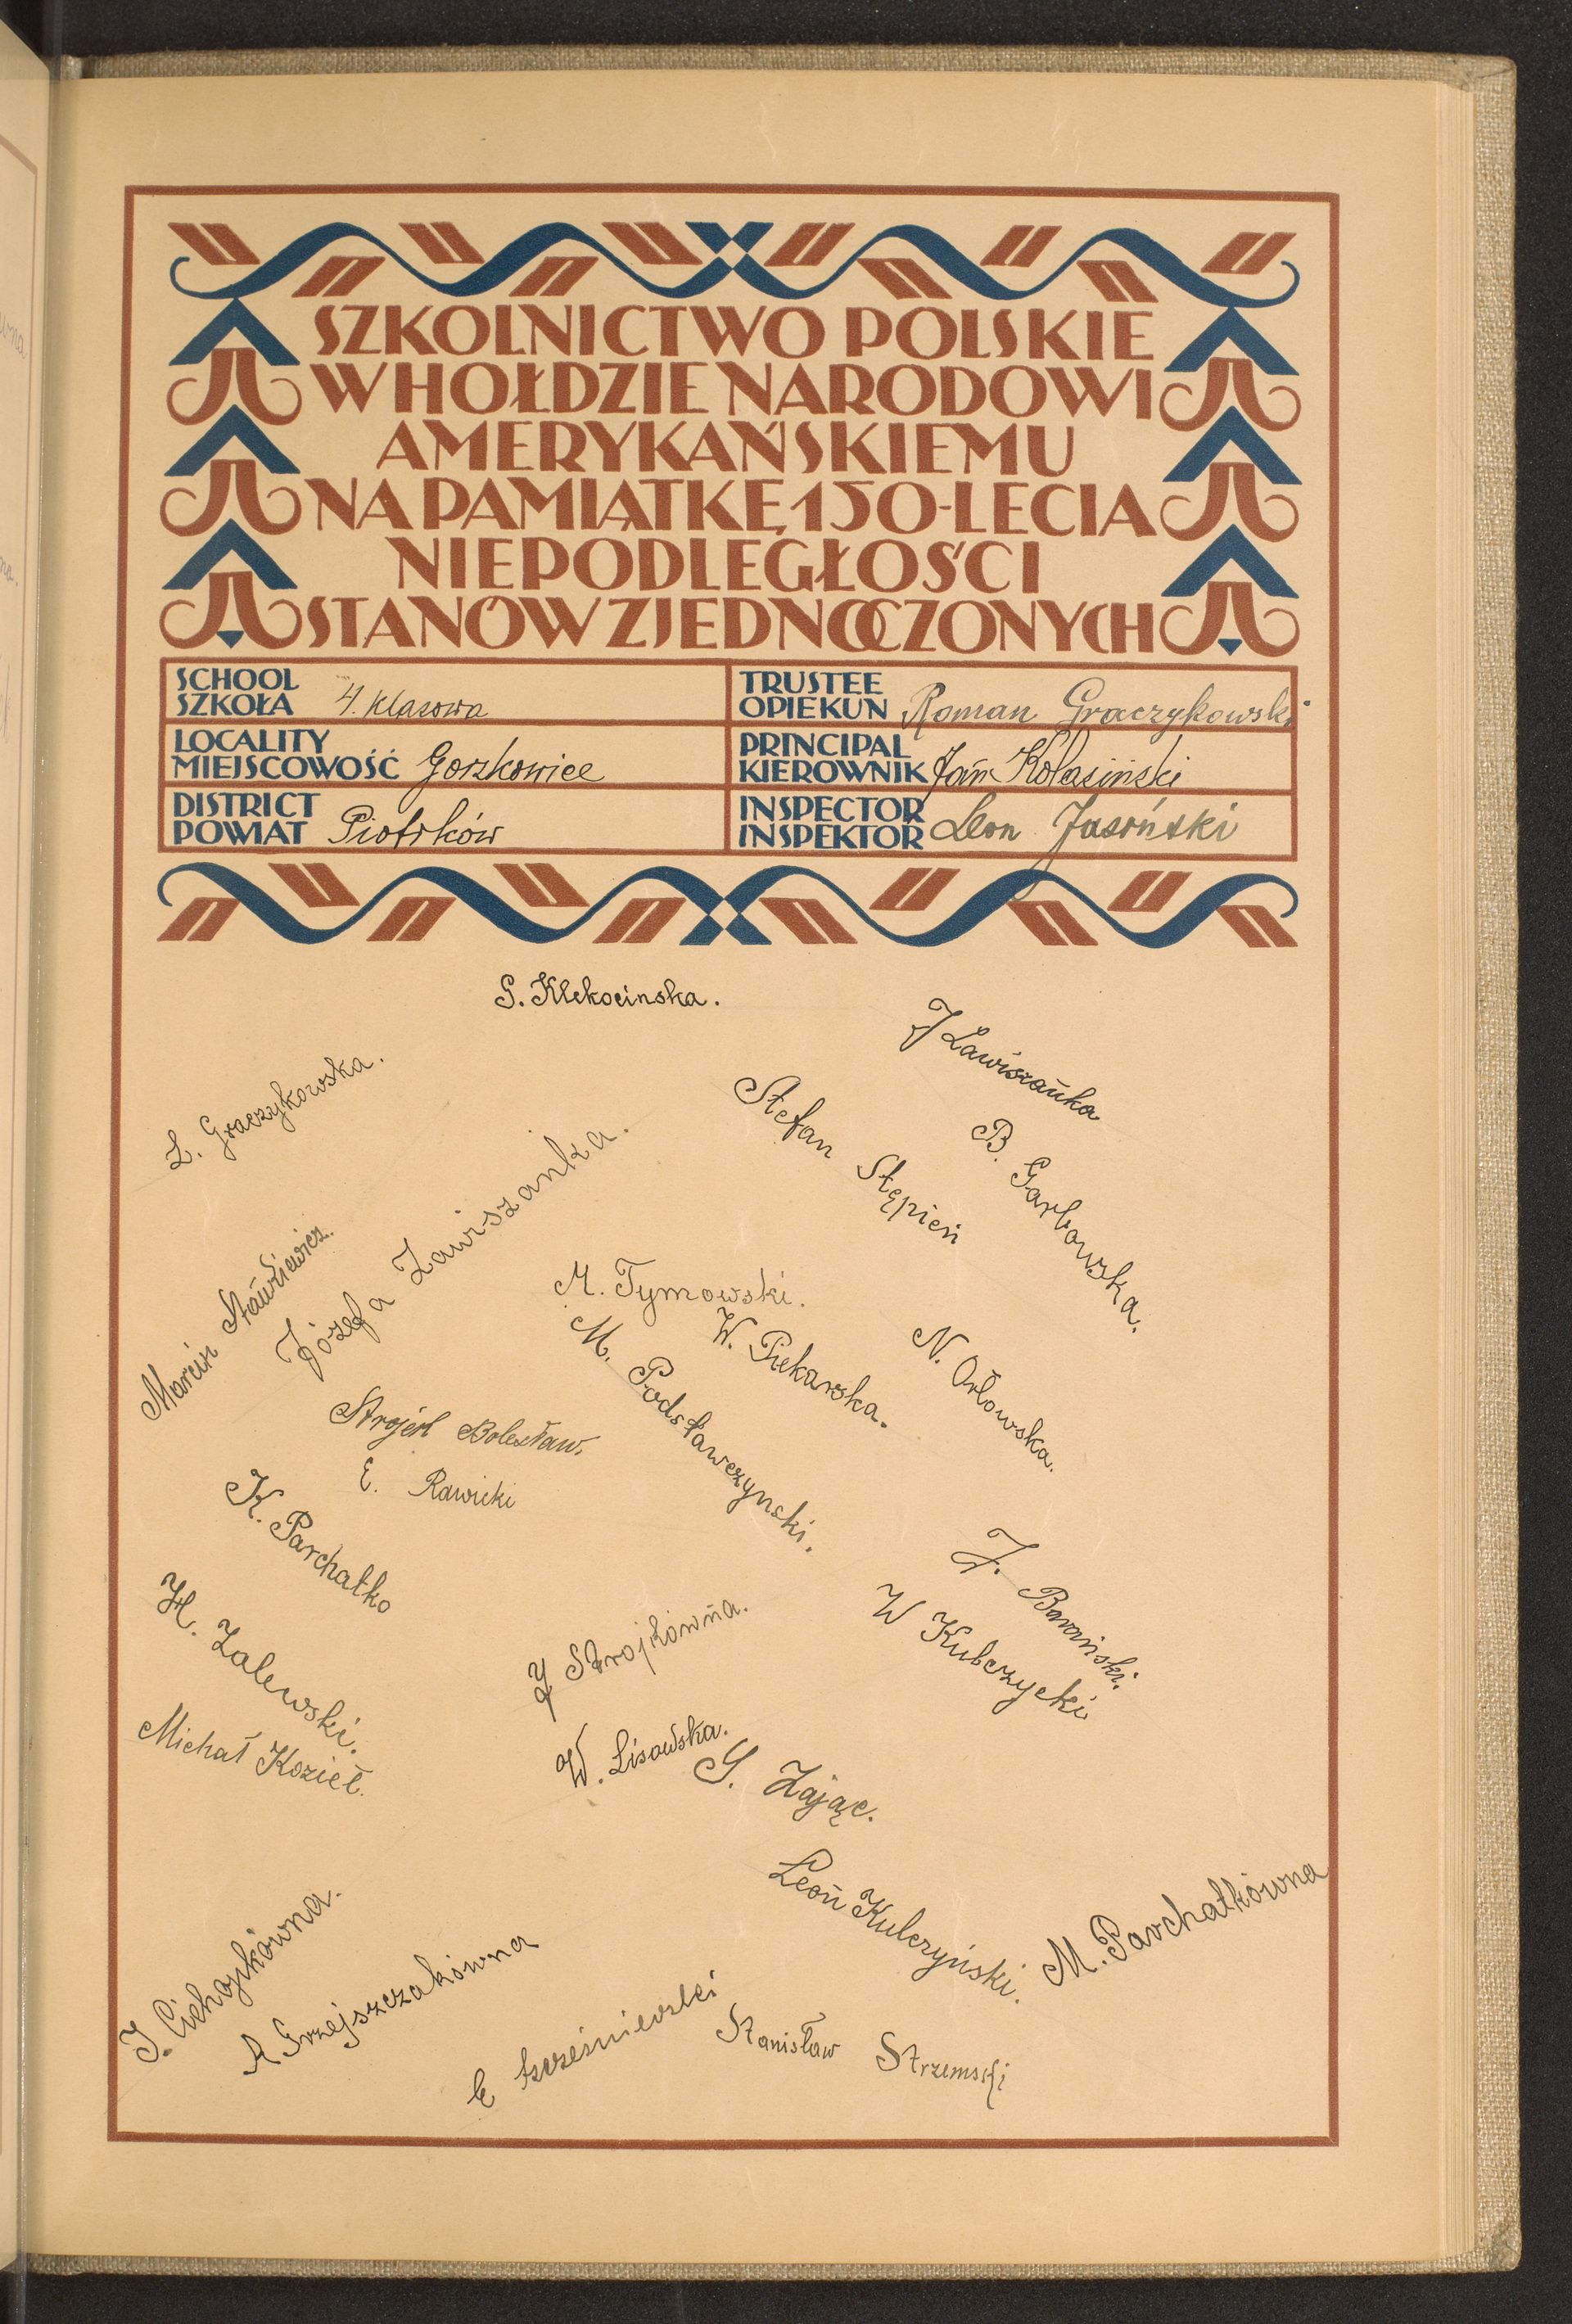 SZKOLNICTWO POLSKIE
W HOŁDZIE NARODOWI
AMERYKAŃSKIEMU
NA PAMIĄTKĘ 150-LECIA
NIEPODLEGŁOŚCI
STANÓW ZJEDNOCZONYCH
SCHOOL
SZKOŁA 4. klasowa
TRUSTEE
OPIEKUN Roman Graczykowski
LOCALITY
MIEJSCOWOŚĆ Gorzkowice
PRINCIPAL
KIEROWNIK Jan Kolasiński
DISTRICT
POWIAT Piotrków
INSPECTOR
INSPEKTOR Leon Jasoński
S. Klekocinska.
J Zawiszanka
Z. Graczykowska.
Stefan Stępień
B. Garbowska.
Józefa Zawiszanka.
Marcin
M. Tymowski.
W. Piekarska.
N. Orłowska.
M. Podsławczynski.
Strojek Bolesław.
E. Rawicki
K. Parchatko
J. Barański.
H. Zalewski.
W Kubczycki
J Strojkówna.
Michał Kozieł.
W. Lisowska.
S. Zając.
Leon Kulczyński.
M. Parchatkówna
J. Cichozikówna.
A. Grzejszczakówna
Stanisław Strzemski